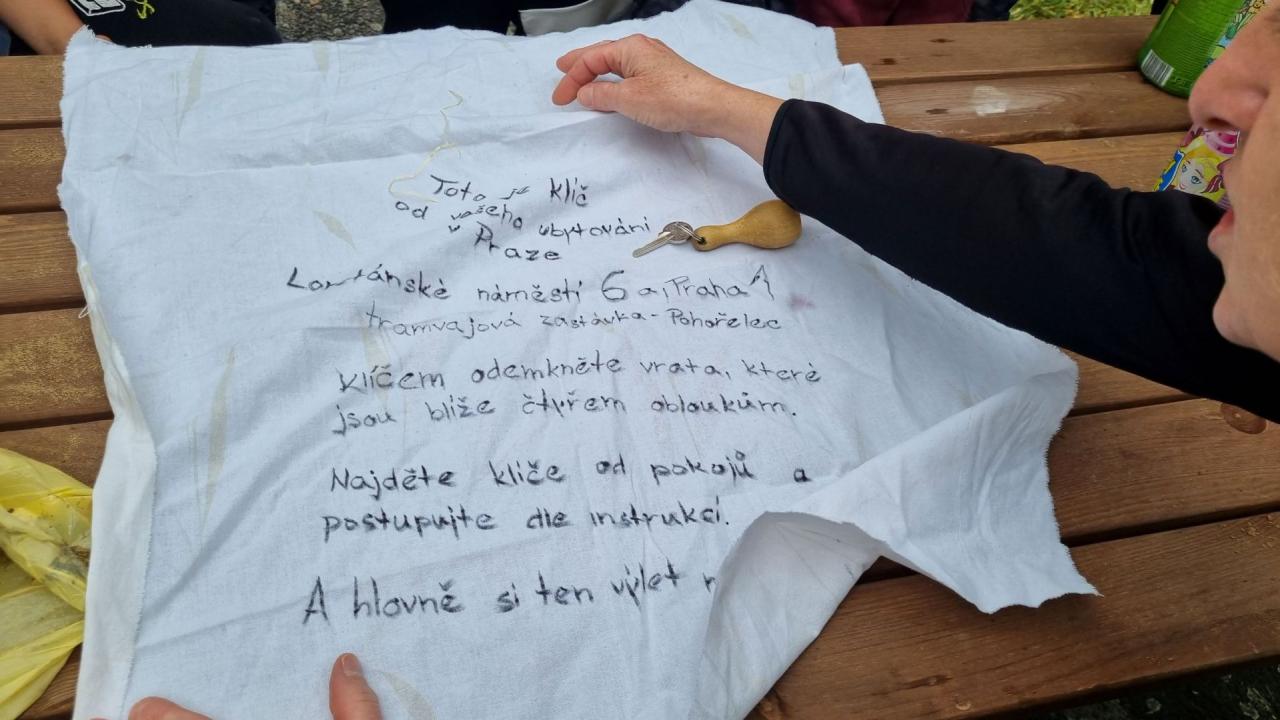 Toto je klíč
od vašeho ubytování
v Praze
Loretánské náměstí 6a, Praha 1
tramvajová zastávka - Pohořelec
Klíčem odemkněte vrata, které
jsou blíže čtyřem obloukům.
Najděte klíče od pokojů a
postupujte dle instrukcí.
A hlovně si ten výlet